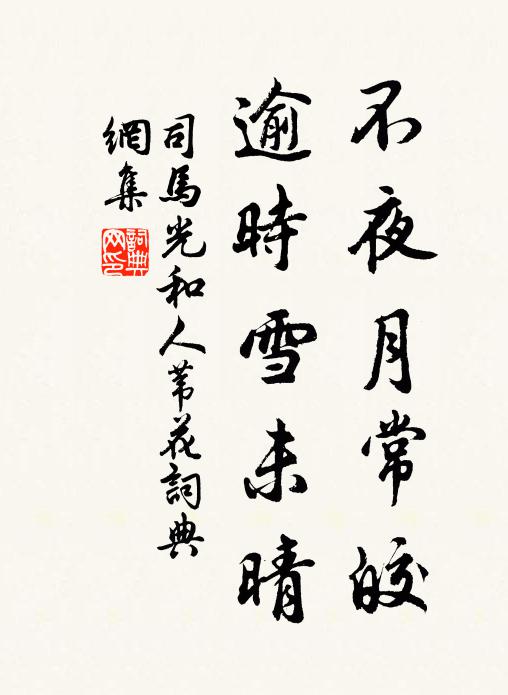 不夜月常皎
逾時雪未晴
司馬光和人苇花詞典
網集
詞典
网印